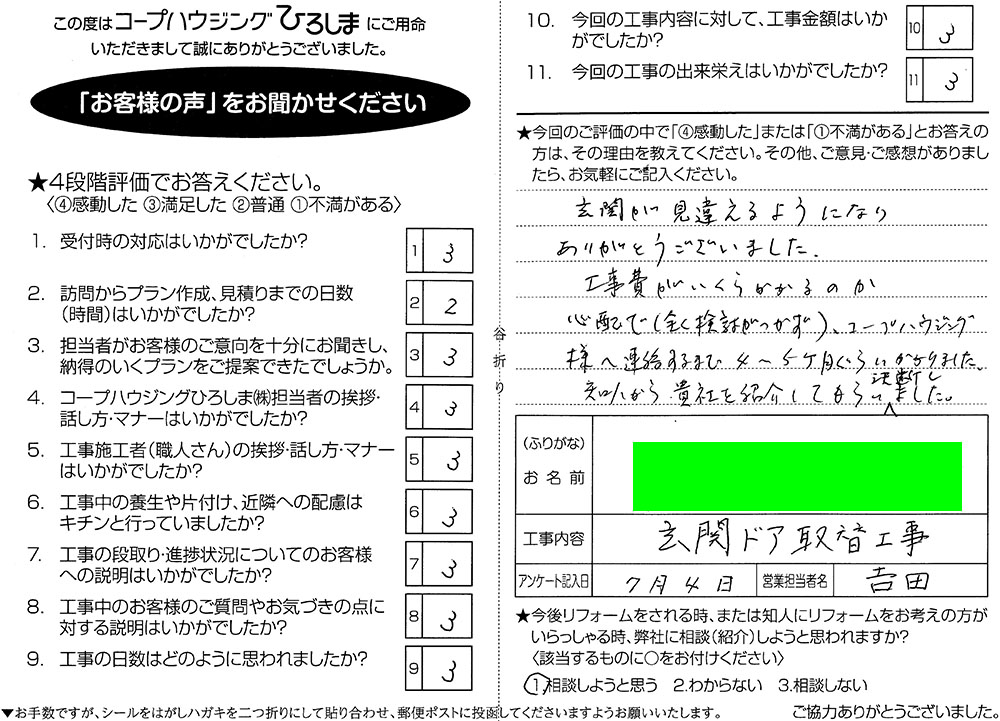 この度はコープハウジングひろしまにご用命
いただきまして誠にありがとうございました。
「お客様の声」をお聞かせください
★4段階評価でお答えください。
〈④感動した ③満足した ②普通 ①不満がある〉
1. 受付時の対応はいかがでしたか?
1 3
2. 訪問からプラン作成、見積りまでの日数
(時間)はいかがでしたか?
2 2
3. 担当者がお客様のご意向を十分にお聞きし、
納得のいくプランをご提案できたでしょうか。
3 3
4. コープハウジングひろしま㈱担当者の挨拶・
話し方・マナーはいかがでしたか?
4 3
5. 工事施工者(職人さん)の挨拶・話し方・マナー
はいかがでしたか?
5 3
6. 工事中の養生や片付け、近隣への配慮は
キチンと行っていましたか?
6 3
7. 工事の段取り・進捗状況についてのお客様
への説明はいかがでしたか?
7 3
8. 工事中のお客様のご質問やお気づきの点に
対する説明はいかがでしたか?
8 3
9. 工事の日数はどのように思われましたか?
9 3
▼お手数ですが、シールをはがしハガキを二つ折りにして貼り合わせ、郵便ポストに投函してくださいますようお願いいたします。
谷折り
10. 今回の工事内容に対して、工事金額はいか
がでしたか?
10 3
11. 今回の工事の出来栄えはいかがでしたか?
11 3
★今回のご評価の中で「④感動した」または「①不満がある」とお答えの
方は、その理由を教えてください。その他、ご意見・ご感想がありまし
たら、お気軽にご記入ください。
玄関が見違えるようになり
ありがとうございました.
工事費がいくらかかるのか
心配で(全く検討がつかず)、コープハウジング
様へ連絡するまで4〜5ケ月ぐらいかかりました.
知人から貴社を紹介してもらい決断しました。
(ふりがな)
お名前
工事内容 玄関ドア取替工事
アンケート記入日 7月4日 営業担当者名 吉田
★今後リフォームをされる時、または知人にリフォームをお考えの方が
いらっしゃる時、弊社に相談(紹介)しようと思われますか?
〈該当するものに○をお付けください〉
1.相談しようと思う 2.わからない 3.相談しない
ご協力ありがとうございました。